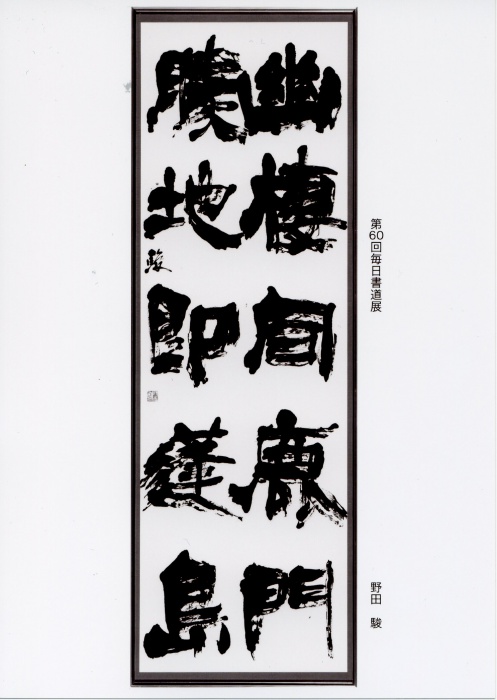 幽棲同鹿門
勝地即蓬島
駿
第60回毎日書道展
野田 駿